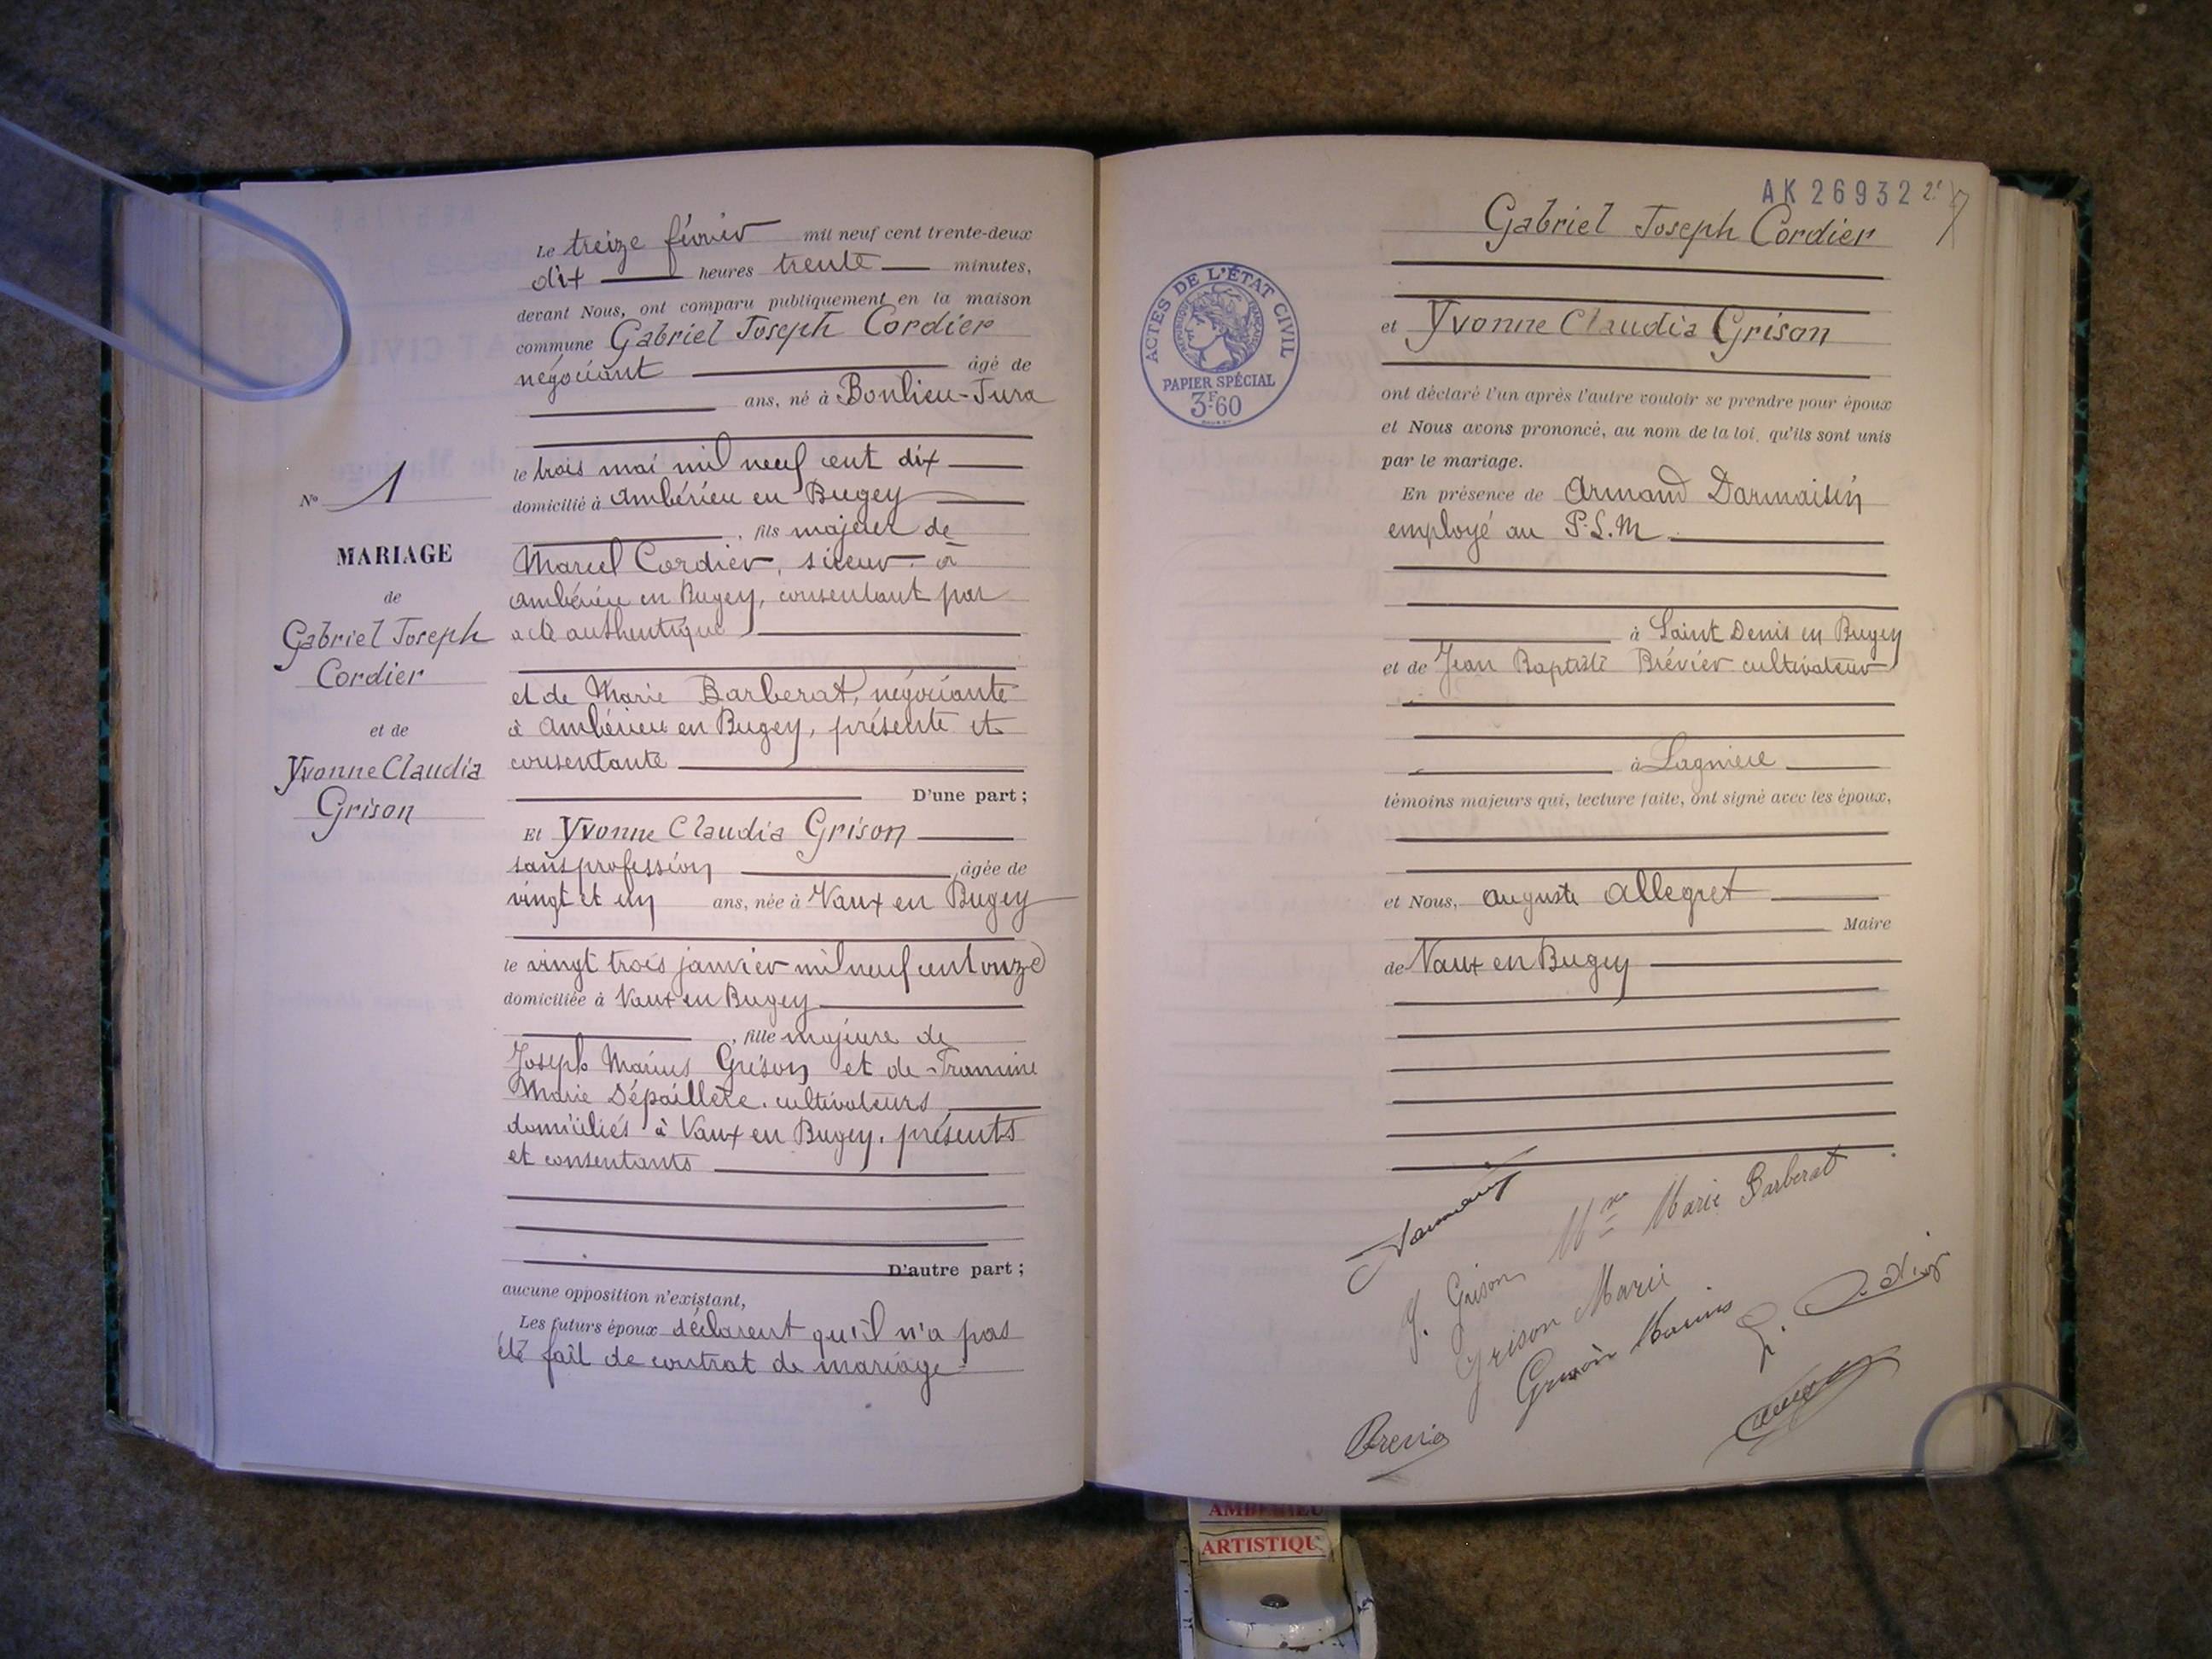 Le treize février mil neuf cent trente-deux
dix heures trente minutes,
devant Nous, ont comparu publiquement en la maison
commune Gabriel Joseph Cordier
négociant âgé de
ans, né à Bonlieu-Jura
le trois mai mil neuf cent dix
domicilié à Ambérieu en Bugey
, fils majeur de
Marcel Cordier, scieur à
Ambérieu en Bugey, consentant par
acte authentique
et de Marie Barberat, négociante
à Ambérieu en Bugey, présente et
consentante
D'une part;
Et Yvonne Claudia Grison
sans profession âgée de
vingt et un ans, née à Vaux en Bugey
le vingt trois janvier mil neuf cent onze
domiciliée à Vaux en Bugey
, fille majeure de
Joseph Marius Grison et de
Marie Dépaillère, cultivateurs
domiciliés à Vaux en Bugey, présents
et consentants
D'autre part;
aucune opposition n'existant,
Les futurs époux déclarent qu'il n'a pas
été fait de contrat de mariage
N° 1
MARIAGE
de
Gabriel Joseph
Cordier
et de
Yvonne Claudia
Grison
AK 26932
Gabriel Joseph Cordier
et Yvonne Claudia Grison
ont déclaré l'un après l'autre vouloir se prendre pour époux
et Nous avons prononcé, au nom de la loi, qu'ils sont unis
par le mariage.
En présence de Armand Darmaisin
employé au P.L.M
à Saint Denis en Bugey
et de Jean Baptiste Brévier cultivateur
à Lagnieu
témoins majeurs qui, lecture faite, ont signé avec les époux,
et Nous, Auguste Allegret
Maire
de Vaux en Bugey
ACTES DE L'ÉTAT CIVIL
RÉPUBLIQUE FRANÇAISE
PAPIER SPÉCIAL
3F60
Mme Marie Barberat
Y. Grison
Grison Marie
Grison Marius
AMBERIEU
ARTISTIQU